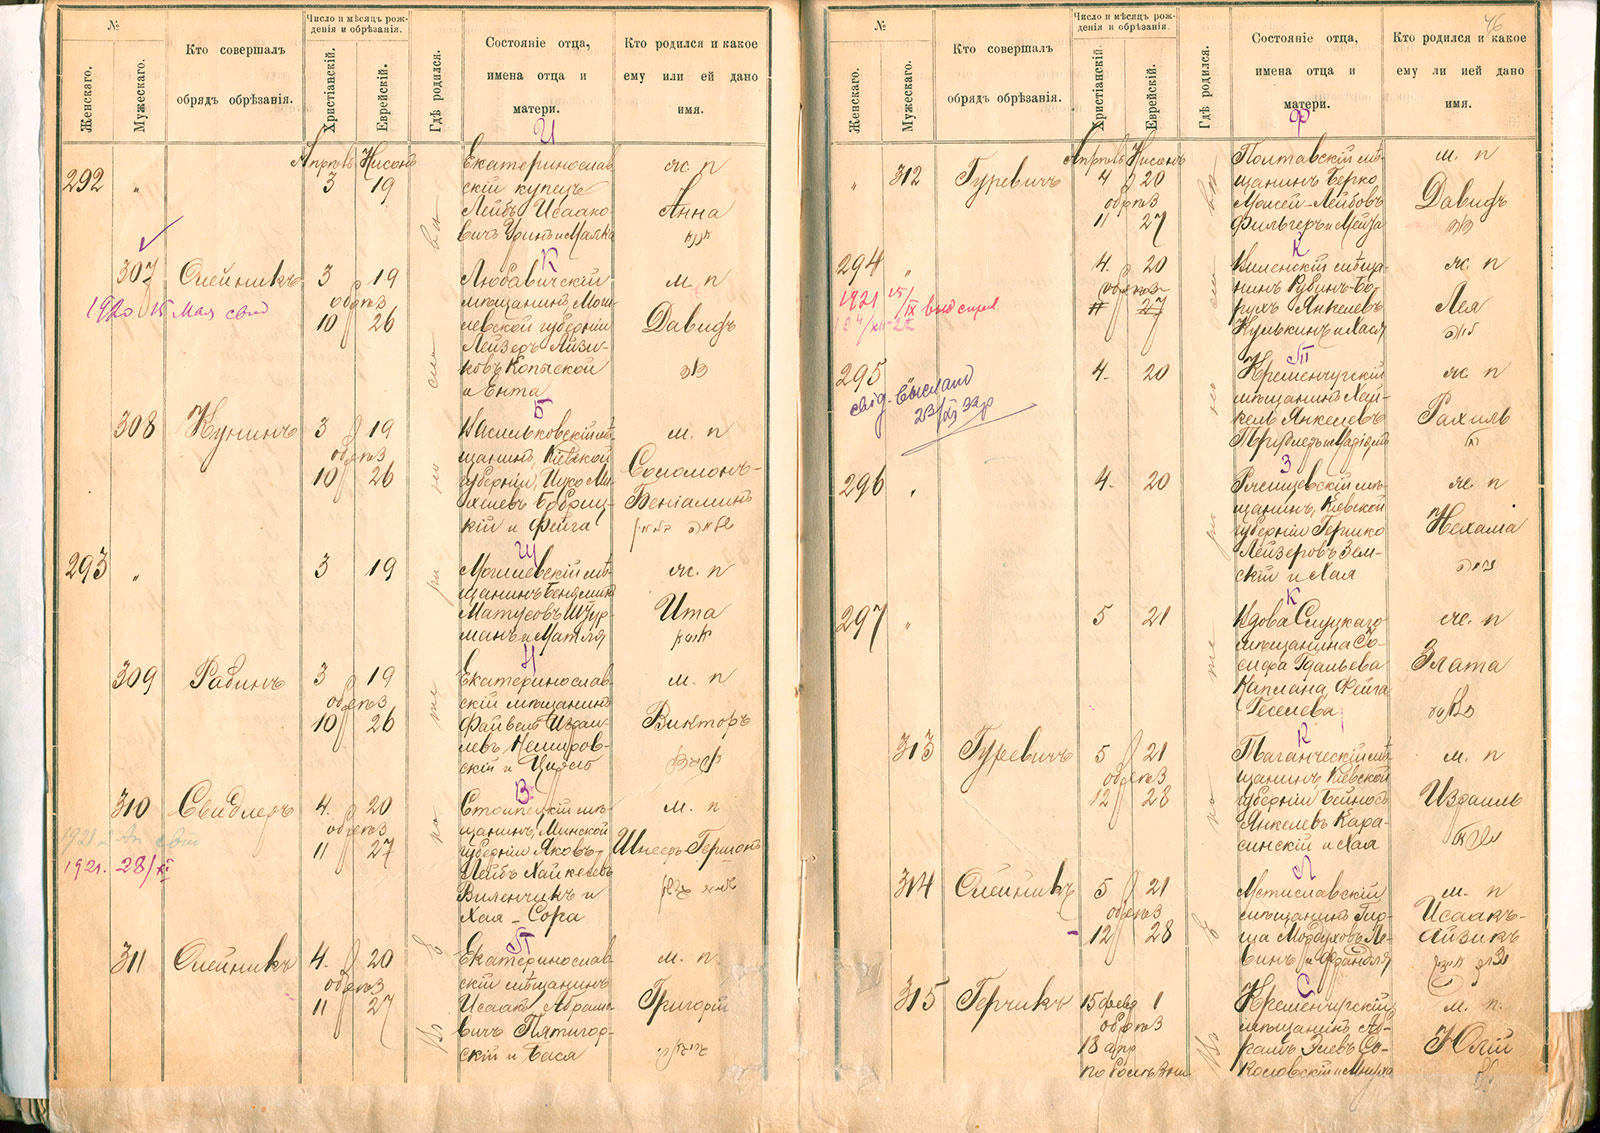 №
Женскаго.
Мужескаго.
Кто совершалъ
обрядъ обрѣзанія.
Число и мѣсяцъ рож-
денія и обрѣзанія.
Христіанскій.
Еврейскій.
Гдѣ родился.
Состояніе отца,
имена отца и
матери.
Кто родился и какое
ему или ей дано
имя.
И
292 „ Апрѣль Нисонъ
3 19
Екатеринослав
скій купецъ
Лейбъ Исаако
вичъ
ж. п
Анна
К
307 Олейникъ 3 19
обрѣз
10 26
1920 15 Мая свид
Любавичскій
мѣщанинъ Моги-
левской губерніи
Лейзеръ Айзи-
ковъ Копыской
и Ента
м. п
Давидъ
דוד
Б
308 Кунинъ 3 19
обрѣз
10 26
Васильковскій мѣ-
щанинъ, Кіевской
губерніи, Ицко Ми-
хелевъ Бобриц-
кій и Фейга
м. п
Соломонъ-
Беніаминъ
Ш
293 „ 3 19
Могилевскій мѣ-
щанинъ Беняминъ
Матусовъ Штур-
манъ и Матля
ж. п
Ита
Н
309 Рабинъ 3 19
обрѣз
10 26
Екатеринослав-
скій мѣщанинъ
Файвель Израи-
левъ Немиров-
скій и
м. п
Викторъ
В
310 Свидлеръ 4. 20
обрѣз
11 27
1921 2 Ап свид
1921. 28/XI
Столпецкій мѣ-
щанинъ, Минской
губерніи Яковъ-
Лейбъ Хайкелевъ
Виленчикъ и
Хая-Сора
м. п
Шнееръ-Германъ
П
311 Олейникъ 4. 20
обрѣз
11 27
Екатеринослав
скій мѣщанинъ
Исаакъ Абрамо
вичъ Пятигор-
скій и Бася
м. п
Григорій
въ Е ка те ри но сла вѣ
46
№
Женскаго.
Мужескаго.
Кто совершалъ
обрядъ обрѣзанія.
Число и мѣсяцъ рож-
денія и обрѣзанія.
Христіанскій.
Еврейскій.
Гдѣ родился.
Состояніе отца,
имена отца и
матери.
Кто родился и какое
ему ли ией дано
имя.
Ф
„ 312 Гуревичъ Апрѣль Нисонъ
4 20
обрѣз
11 27
Полтавскій мѣ-
щанинъ Берко
Мовсей-Лейбовъ
Фильгеръ и
м. п
Давидъ
דוד
К
294 „ 4. 20
обрѣз
11 27
1921 15/IX выд справ.
Виленскій мѣща-
нинъ Рубинъ-Бо-
рухъ Янкелевъ
Кулькинъ и Хася
ж. п
Лея
לאה
П
295 4. 20
свид. выслано
Кременчугскій
мѣщанинъ Хай-
кель Янкелевъ
ж. п
Рахиль
З
296 „ 4. 20
Ржищевскій мѣ-
щанинъ, Кіевской
губерніи Гершко
Лейзеровъ Зем-
скій и Хая
ж. п
Нехама
К
297 „ 5 21
Вдова Слуцкаго
мѣщанина Іо-
сифа Гдальева
Каплана, Фейга
Геселева
ж. п
Злата
К
313 Гуревичъ 5 21
обрѣз
12 28
Таганческій мѣ-
щанинъ, Кіевской
губерніи, Бейносъ
Янкелевъ Кара-
синскій и Хая
м. п
Израиль
Л
314 Олейникъ 5 21
обрѣз
12 28
Мстиславскій
мѣщанинъ Гир-
ша Мордуховъ Ле-
винъ и
м. п
Исаакъ-
Айзикъ
С
315 Герчикъ 15 февр 1
обрѣз
13 апр
по болѣзни
Кременчугскій
мѣщанинъ Аб-
рамъ Элевъ Со-
коловскій и
м. п.
Юлій
въ Е ка те ри но сла вѣ